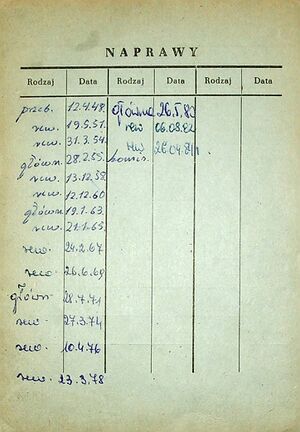 NAPRAWY
Rodzaj Data Rodzaj Data Rodzaj Data
przeb. 12.4.48. główna 26.I.80
rew. 19.5.51. rew 06.03.82
rew. 31.3.54. rew 26.04.84r
główn. 28.2.55.
rew. 13.12.58.
rew. 12.12.60
główn. 19.1.63.
rew. 21.1.65.
rew. 24.2.67.
rewo. 26.6.69
główn 28.7.71
rew. 27.3.74
rewo. 10.4.76
rew. 23.3.78